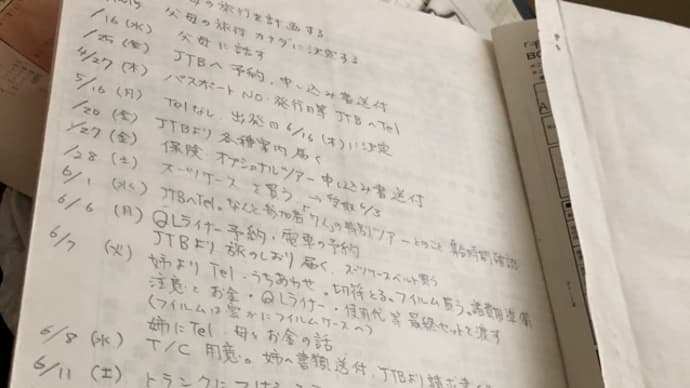 母の旅行を計画する
/16 (水) 父母の旅行 カナダに決定する
/25 (金) 父母に話す
4/27 (木) JTBへ予約、申し込み書送付
5/16 (月) パスポートNO. 発行日等 JTBへTel
/20 (金) Telなし. 出発日 6/16 (木) に決定
/27 (金) JTBより各種案内届く
/28 (土) 保険. オプショナルツアー申し込み書送付
6/1 (水) スーツケースを買う. → 受取 6/5
6/6 (月) JTBへTel. なんと参加者 の特別ツアーとのこと 集合時間確認
6/7 (火) QLライナー予約・電車の予約
JTBより旅のしおり届く. スーツケースベルト買う
姉よりTel. うちあわせ。切符とる。フィルム買う。諸費用準備
注意とお金・QLライナー・ 等最終セットを渡す
(フィルムは フィルムケースへ)
6/8 (水) 姉にTel 母とお金の話
6/11 (土) T/C 用意。姉へ書類送付. JTBより請求
トランクに